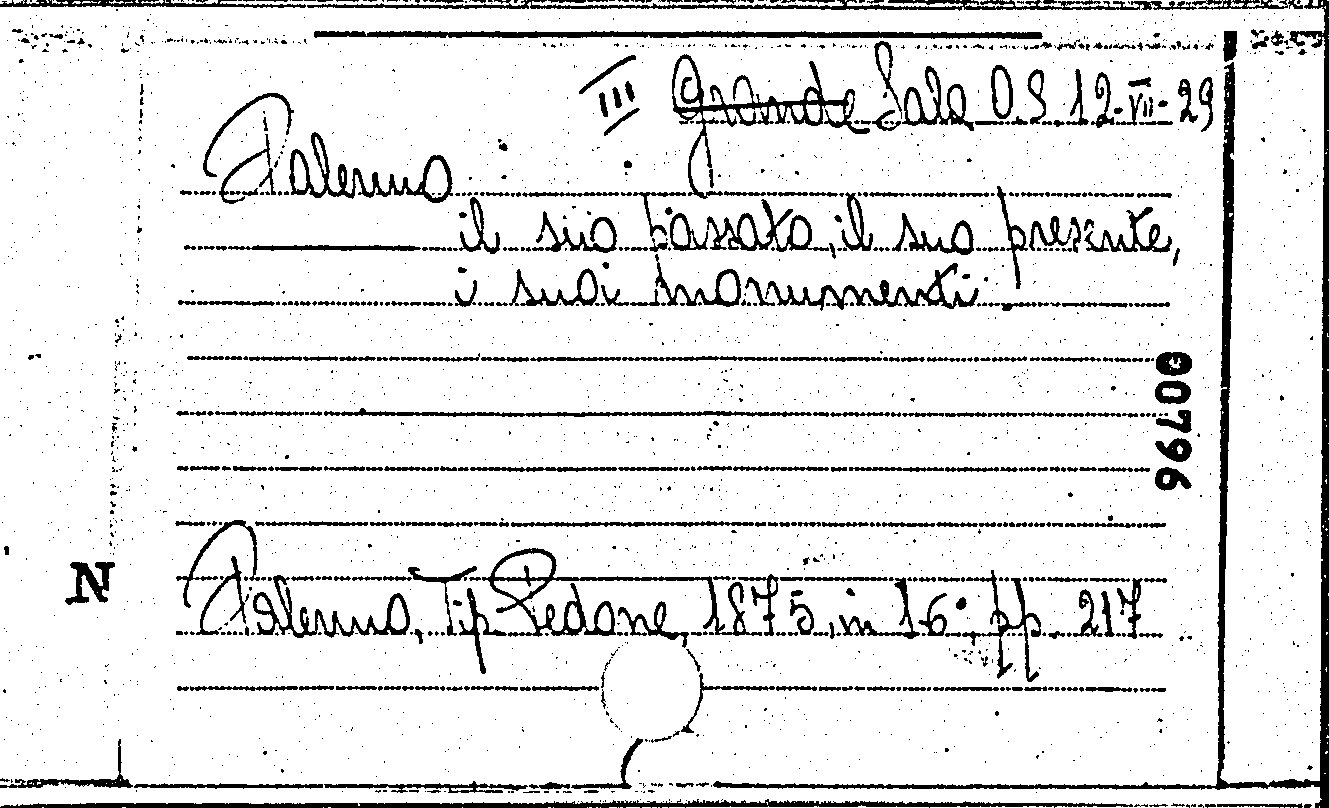 III Grande Sala O.S. 12-VII-29
Palermo
il suo passato, il suo presente,
i suoi monumenti.
00796
N
Palermo, Tip. Pedone, 1875, in 16°, pp. 217